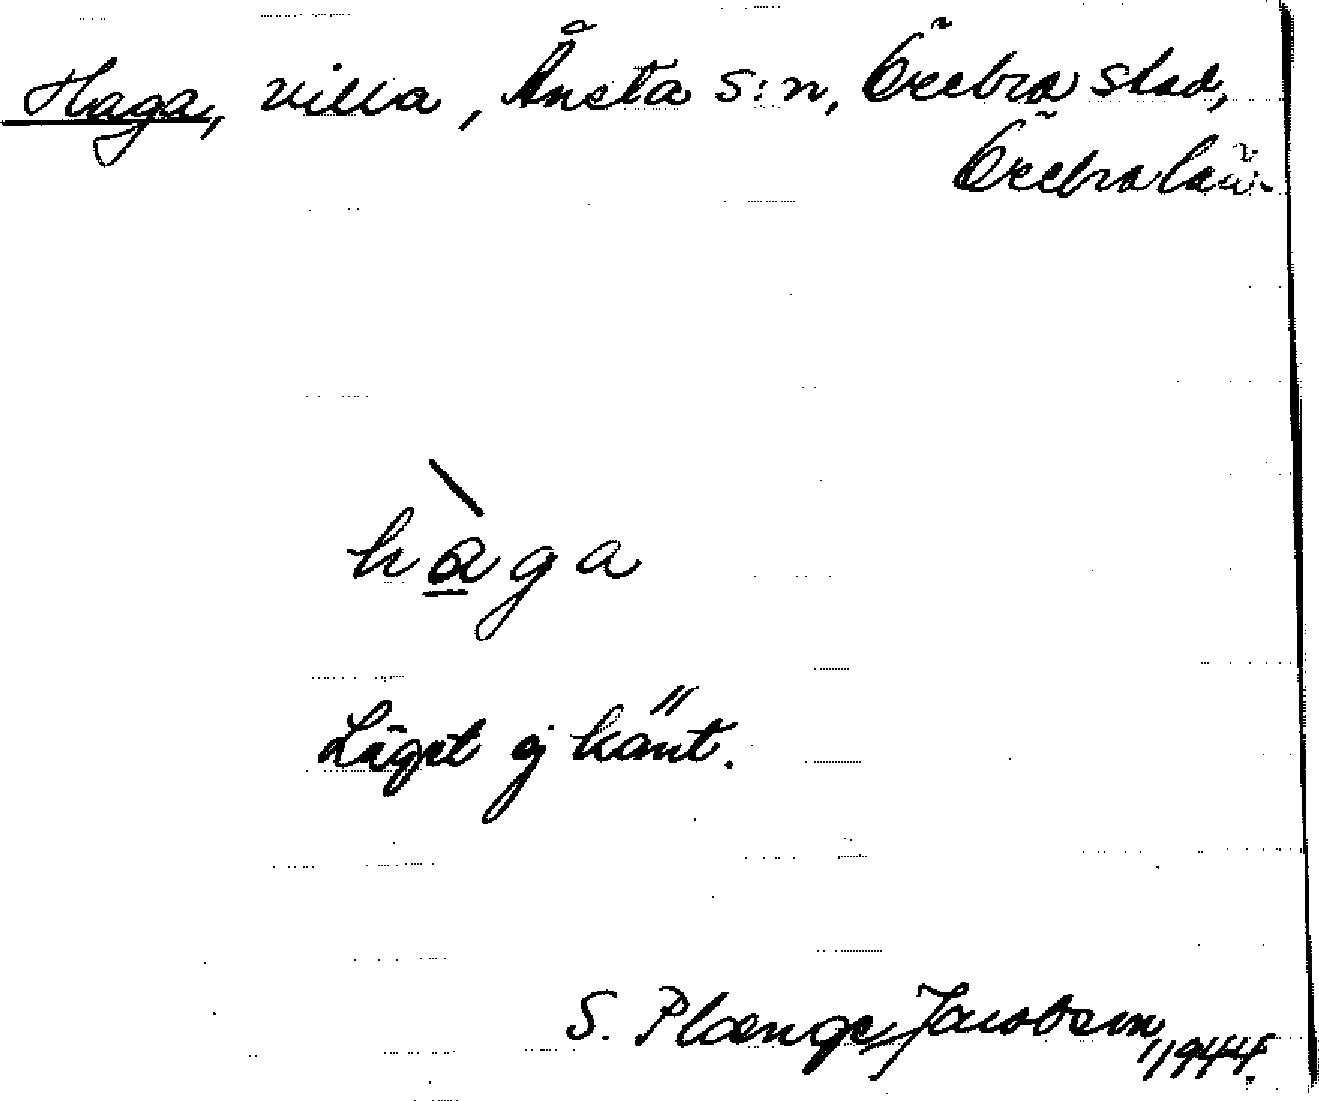 Haga, villa, Ånsta s:n, Örebro stad,
Örebro län.
hàga
Läget ej känt.
S. Plaenge Jacobson, 1944.